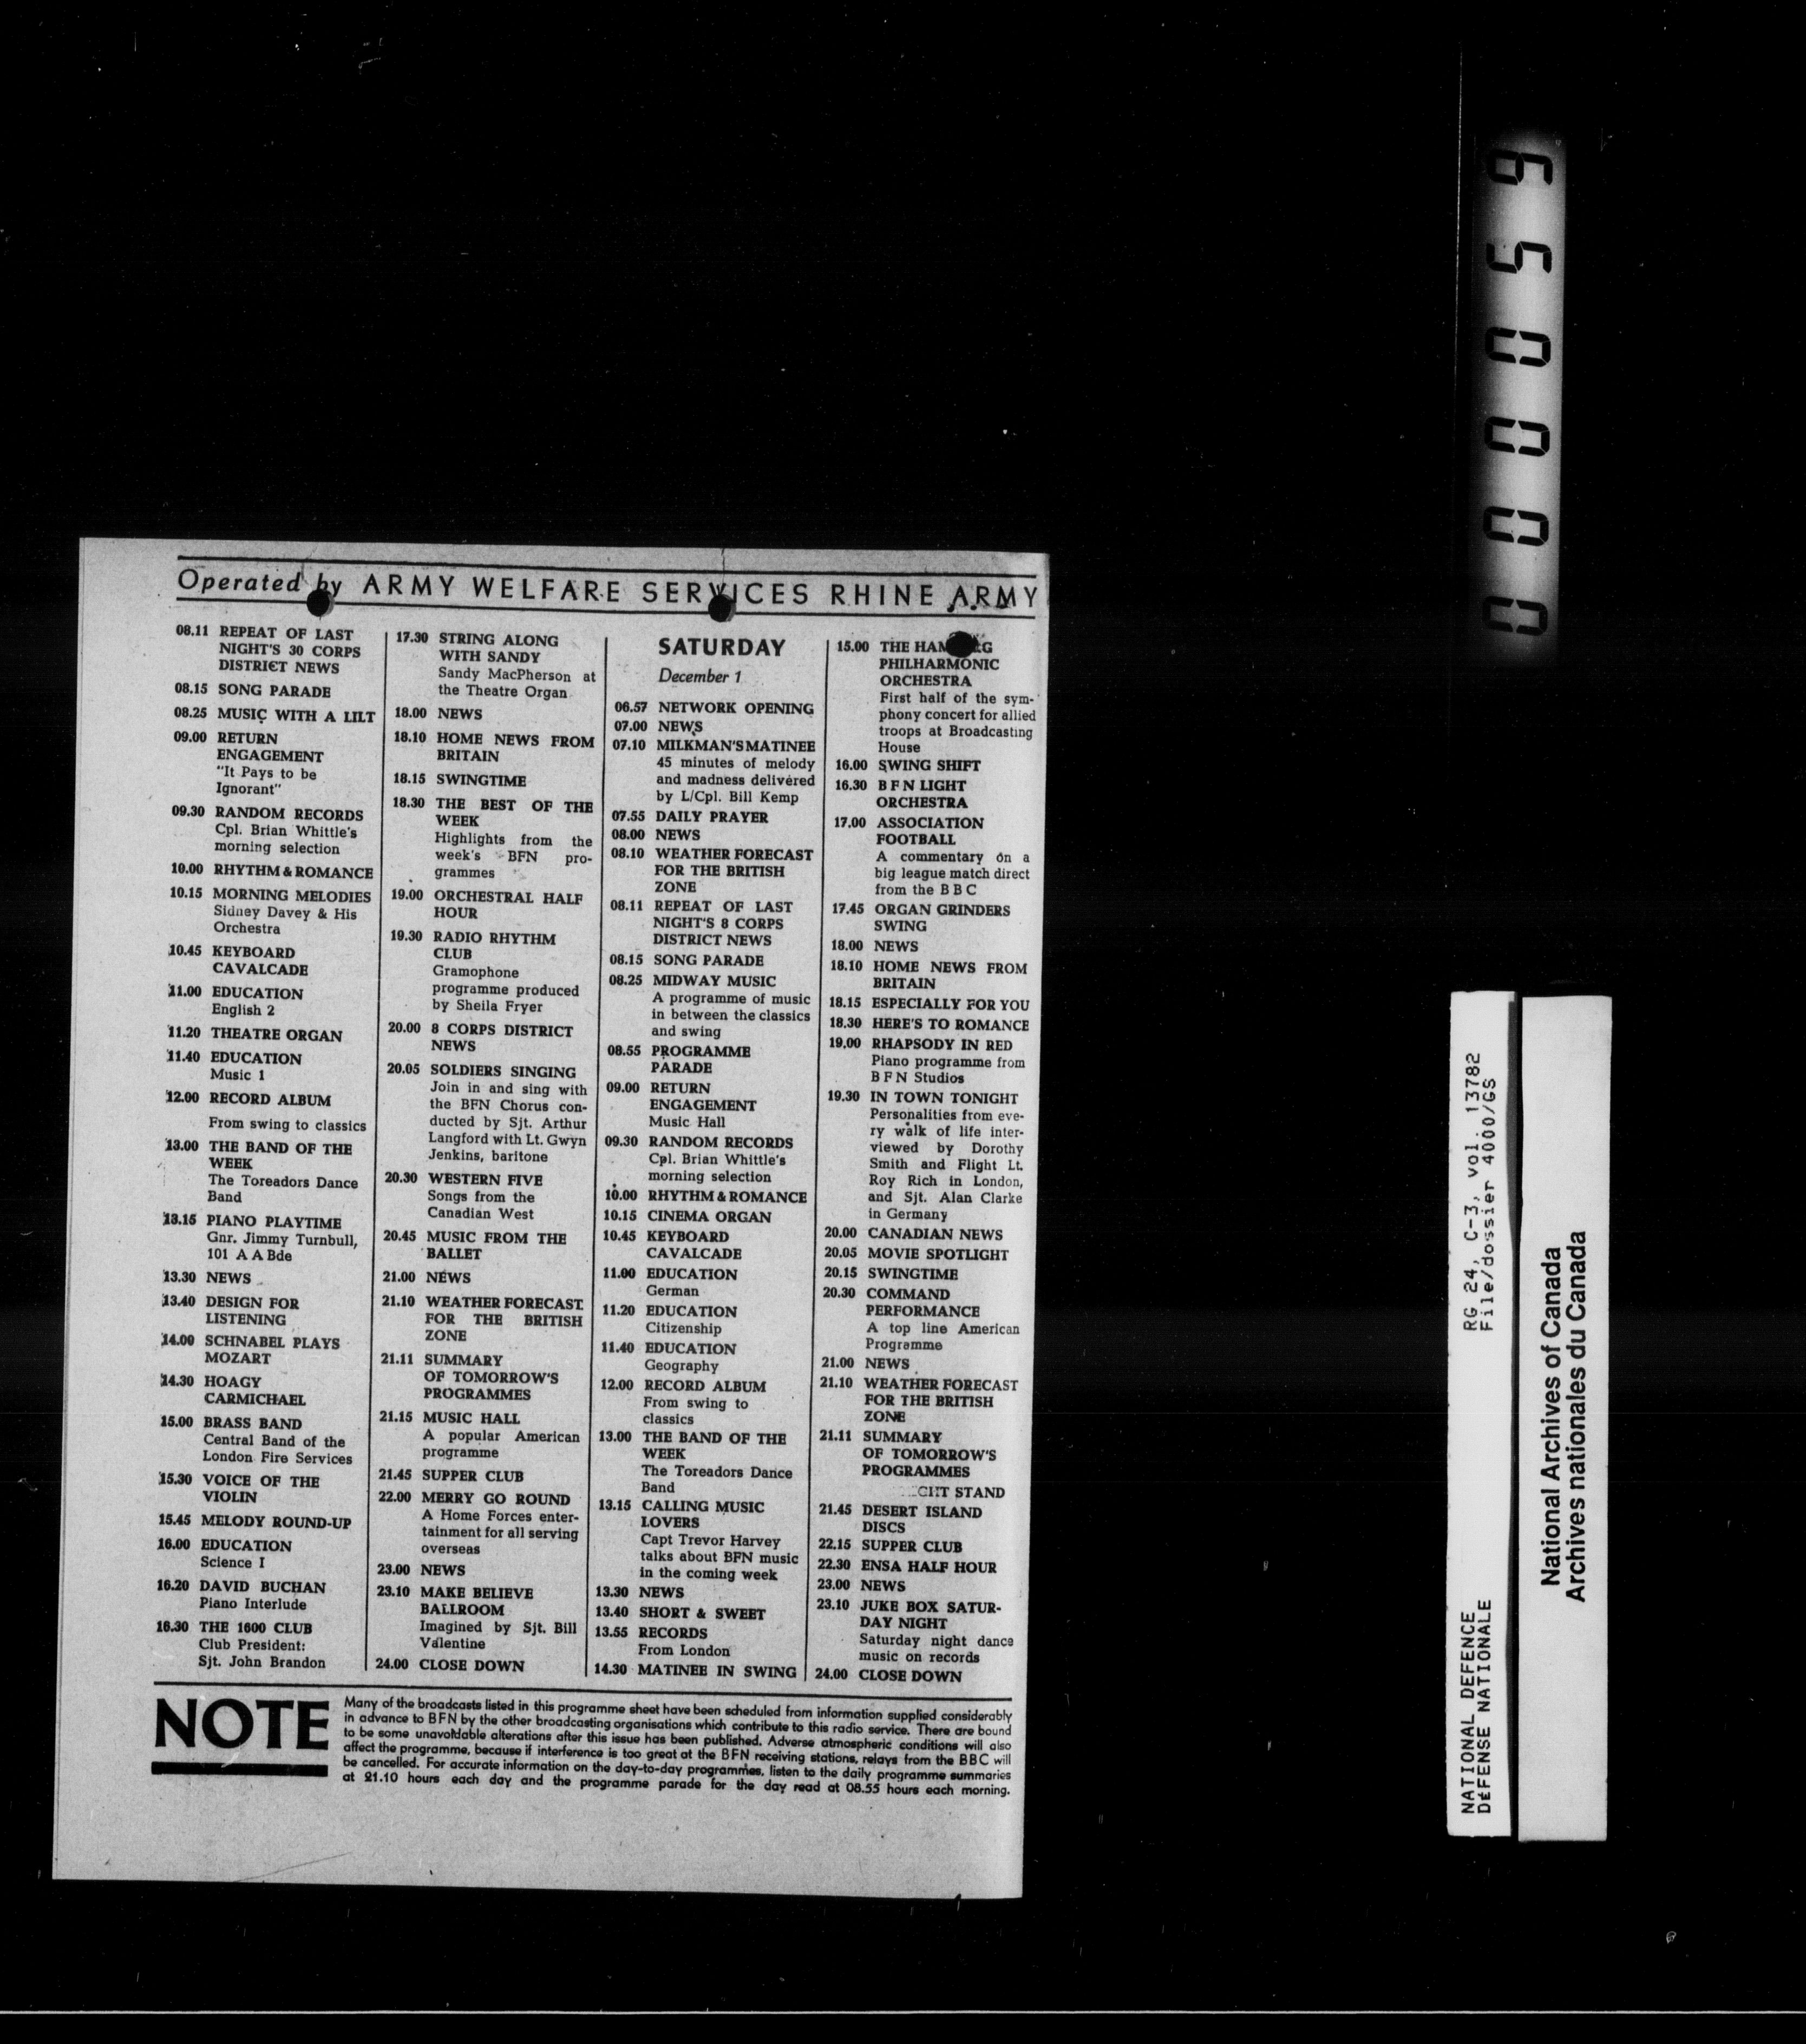 Operated by ARMY WELFARE SERVICES RHINE ARMY
08.11 REPEAT OF LAST
NIGHT'S 30 CORPS
DISTRICT NEWS
08.15 SONG PARADE
08.25 MUSIC WITH A LILT
09.00 RETURN
ENGAGEMENT
"It Pays to be
Ignorant"
09.30 RANDOM RECORDS
Cpl. Brian Whittle's
morning selection
10.00 RHYTHM & ROMANCE
10.15 MORNING MELODIES
Sidney Davey & His
Orchestra
10.45 KEYBOARD
CAVALCADE
11.00 EDUCATION
English 2
11.20 THEATRE ORGAN
11.40 EDUCATION
Music 1
12.00 RECORD ALBUM
From swing to classics
13.00 THE BAND OF THE
WEEK
The Toreadors Dance
Band
13.15 PIANO PLAYTIME
Gnr. Jimmy Turnbull,
101 A A Bde
13.30 NEWS
13.40 DESIGN FOR
LISTENING
14.00 SCHNABEL PLAYS
MOZART
14.30 HOAGY
CARMICHAEL
15.00 BRASS BAND
Central Band of the
London Fire Services
15.30 VOICE OF THE
VIOLIN
15.45 MELODY ROUND-UP
16.00 EDUCATION
Science I
16.20 DAVID BUCHAN
Piano Interlude
16.30 THE 1600 CLUB
Club President:
Sjt. John Brandon
17.30 STRING ALONG
WITH SANDY
Sandy MacPherson at
the Theatre Organ
18.00 NEWS
18.10 HOME NEWS FROM
BRITAIN
18.15 SWINGTIME
18.30 THE BEST OF THE
WEEK
Highlights from the
week's BFN pro-
grammes
19.00 ORCHESTRAL HALF
HOUR
19.30 RADIO RHYTHM
CLUB
Gramophone
programme produced
by Sheila Fryer
20.00 8 CORPS DISTRICT
NEWS
20.05 SOLDIERS SINGING
Join in and sing with
the BFN Chorus con-
ducted by Sjt. Arthur
Langford with Lt. Gwyn
Jenkins, baritone
20.30 WESTERN FIVE
Songs from the
Canadian West
20.45 MUSIC FROM THE
BALLET
21.00 NEWS
21.10 WEATHER FORECAST
FOR THE BRITISH
ZONE
21.11 SUMMARY
OF TOMORROW'S
PROGRAMMES
21.15 MUSIC HALL
A popular American
programme
21.45 SUPPER CLUB
22.00 MERRY GO ROUND
A Home Forces enter-
tainment for all serving
overseas
23.00 NEWS
23.10 MAKE BELIEVE
BALLROOM
Imagined by Sjt. Bill
Valentine
24.00 CLOSE DOWN
SATURDAY
December 1
06.57 NETWORK OPENING
07.00 NEWS
07.10 MILKMAN'S MATINEE
45 minutes of melody
and madness delivered
by L/Cpl. Bill Kemp
07.55 DAILY PRAYER
08.00 NEWS
08.10 WEATHER FORECAST
FOR THE BRITISH
ZONE
08.11 REPEAT OF LAST
NIGHT'S 8 CORPS
DISTRICT NEWS
08.15 SONG PARADE
08.25 MIDWAY MUSIC
A programme of music
in between the classics
and swing
08.55 PROGRAMME
PARADE
09.00 RETURN
ENGAGEMENT
Music Hall
09.30 RANDOM RECORDS
Cpl. Brian Whittle's
morning selection
10.00 RHYTHM & ROMANCE
10.15 CINEMA ORGAN
10.45 KEYBOARD
CAVALCADE
11.00 EDUCATION
German
11.20 EDUCATION
Citizenship
11.40 EDUCATION
Geography
12.00 RECORD ALBUM
From swing to
classics
13.00 THE BAND OF THE
WEEK
The Toreadors Dance
Band
13.15 CALLING MUSIC
LOVERS
Capt Trevor Harvey
talks about BFN music
in the coming week
13.30 NEWS
13.40 SHORT & SWEET
13.55 RECORDS
From London
14.30 MATINEE IN SWING
15.00 THE
PHILHARMONIC
ORCHESTRA
First half of the sym-
phony concert for allied
troops at Broadcasting
House
16.00 SWING SHIFT
16.30 B F N LIGHT
ORCHESTRA
17.00 ASSOCIATION
FOOTBALL
A commentary on a
big league match direct
from the B B C
17.45 ORGAN GRINDERS
SWING
18.00 NEWS
18.10 HOME NEWS FROM
BRITAIN
18.15 ESPECIALLY FOR YOU
18.30 HERE'S TO ROMANCE
19.00 RHAPSODY IN RED
Piano programme from
B F N Studios
19.30 IN TOWN TONIGHT
Personalities from eve-
ry walk of life inter-
viewed by Dorothy
Smith and Flight Lt.
Roy Rich in London,
and Sjt. Alan Clarke
in Germany
20.00 CANADIAN NEWS
20.05 MOVIE SPOTLIGHT
20.15 SWINGTIME
20.30 COMMAND
PERFORMANCE
A top line American
Programme
21.00 NEWS
21.10 WEATHER FORECAST
FOR THE BRITISH
ZONE
21.11 SUMMARY
OF TOMORROW'S
PROGRAMMES
STAND
21.45 DESERT ISLAND
DISCS
22.15 SUPPER CLUB
22.30 ENSA HALF HOUR
23.00 NEWS
23.10 JUKE BOX SATUR-
DAY NIGHT
Saturday night dance
music on records
24.00 CLOSE DOWN
NOTE
Many of the broadcasts listed in this programme sheet have been scheduled from information supplied considerably
in advance to BFN by the other broadcasting organisations which contribute to this radio service. There are bound
to be some unavoidable alterations after this issue has been published. Adverse atmospheric conditions will also
affect the programme, because if interference is too great at the BFN receiving stations, relays from the BBC will
be cancelled. For accurate information on the day-to-day programmes, listen to the daily programme summaries
at 21.10 hours each day and the programme parade for the day read at 08.55 hours each morning.
000059
NATIONAL DEFENCE RG 24, C-3, vol. 13782
DÉFENSE NATIONALE File/dossier 4000/GS
National Archives of Canada
Archives nationales du Canada